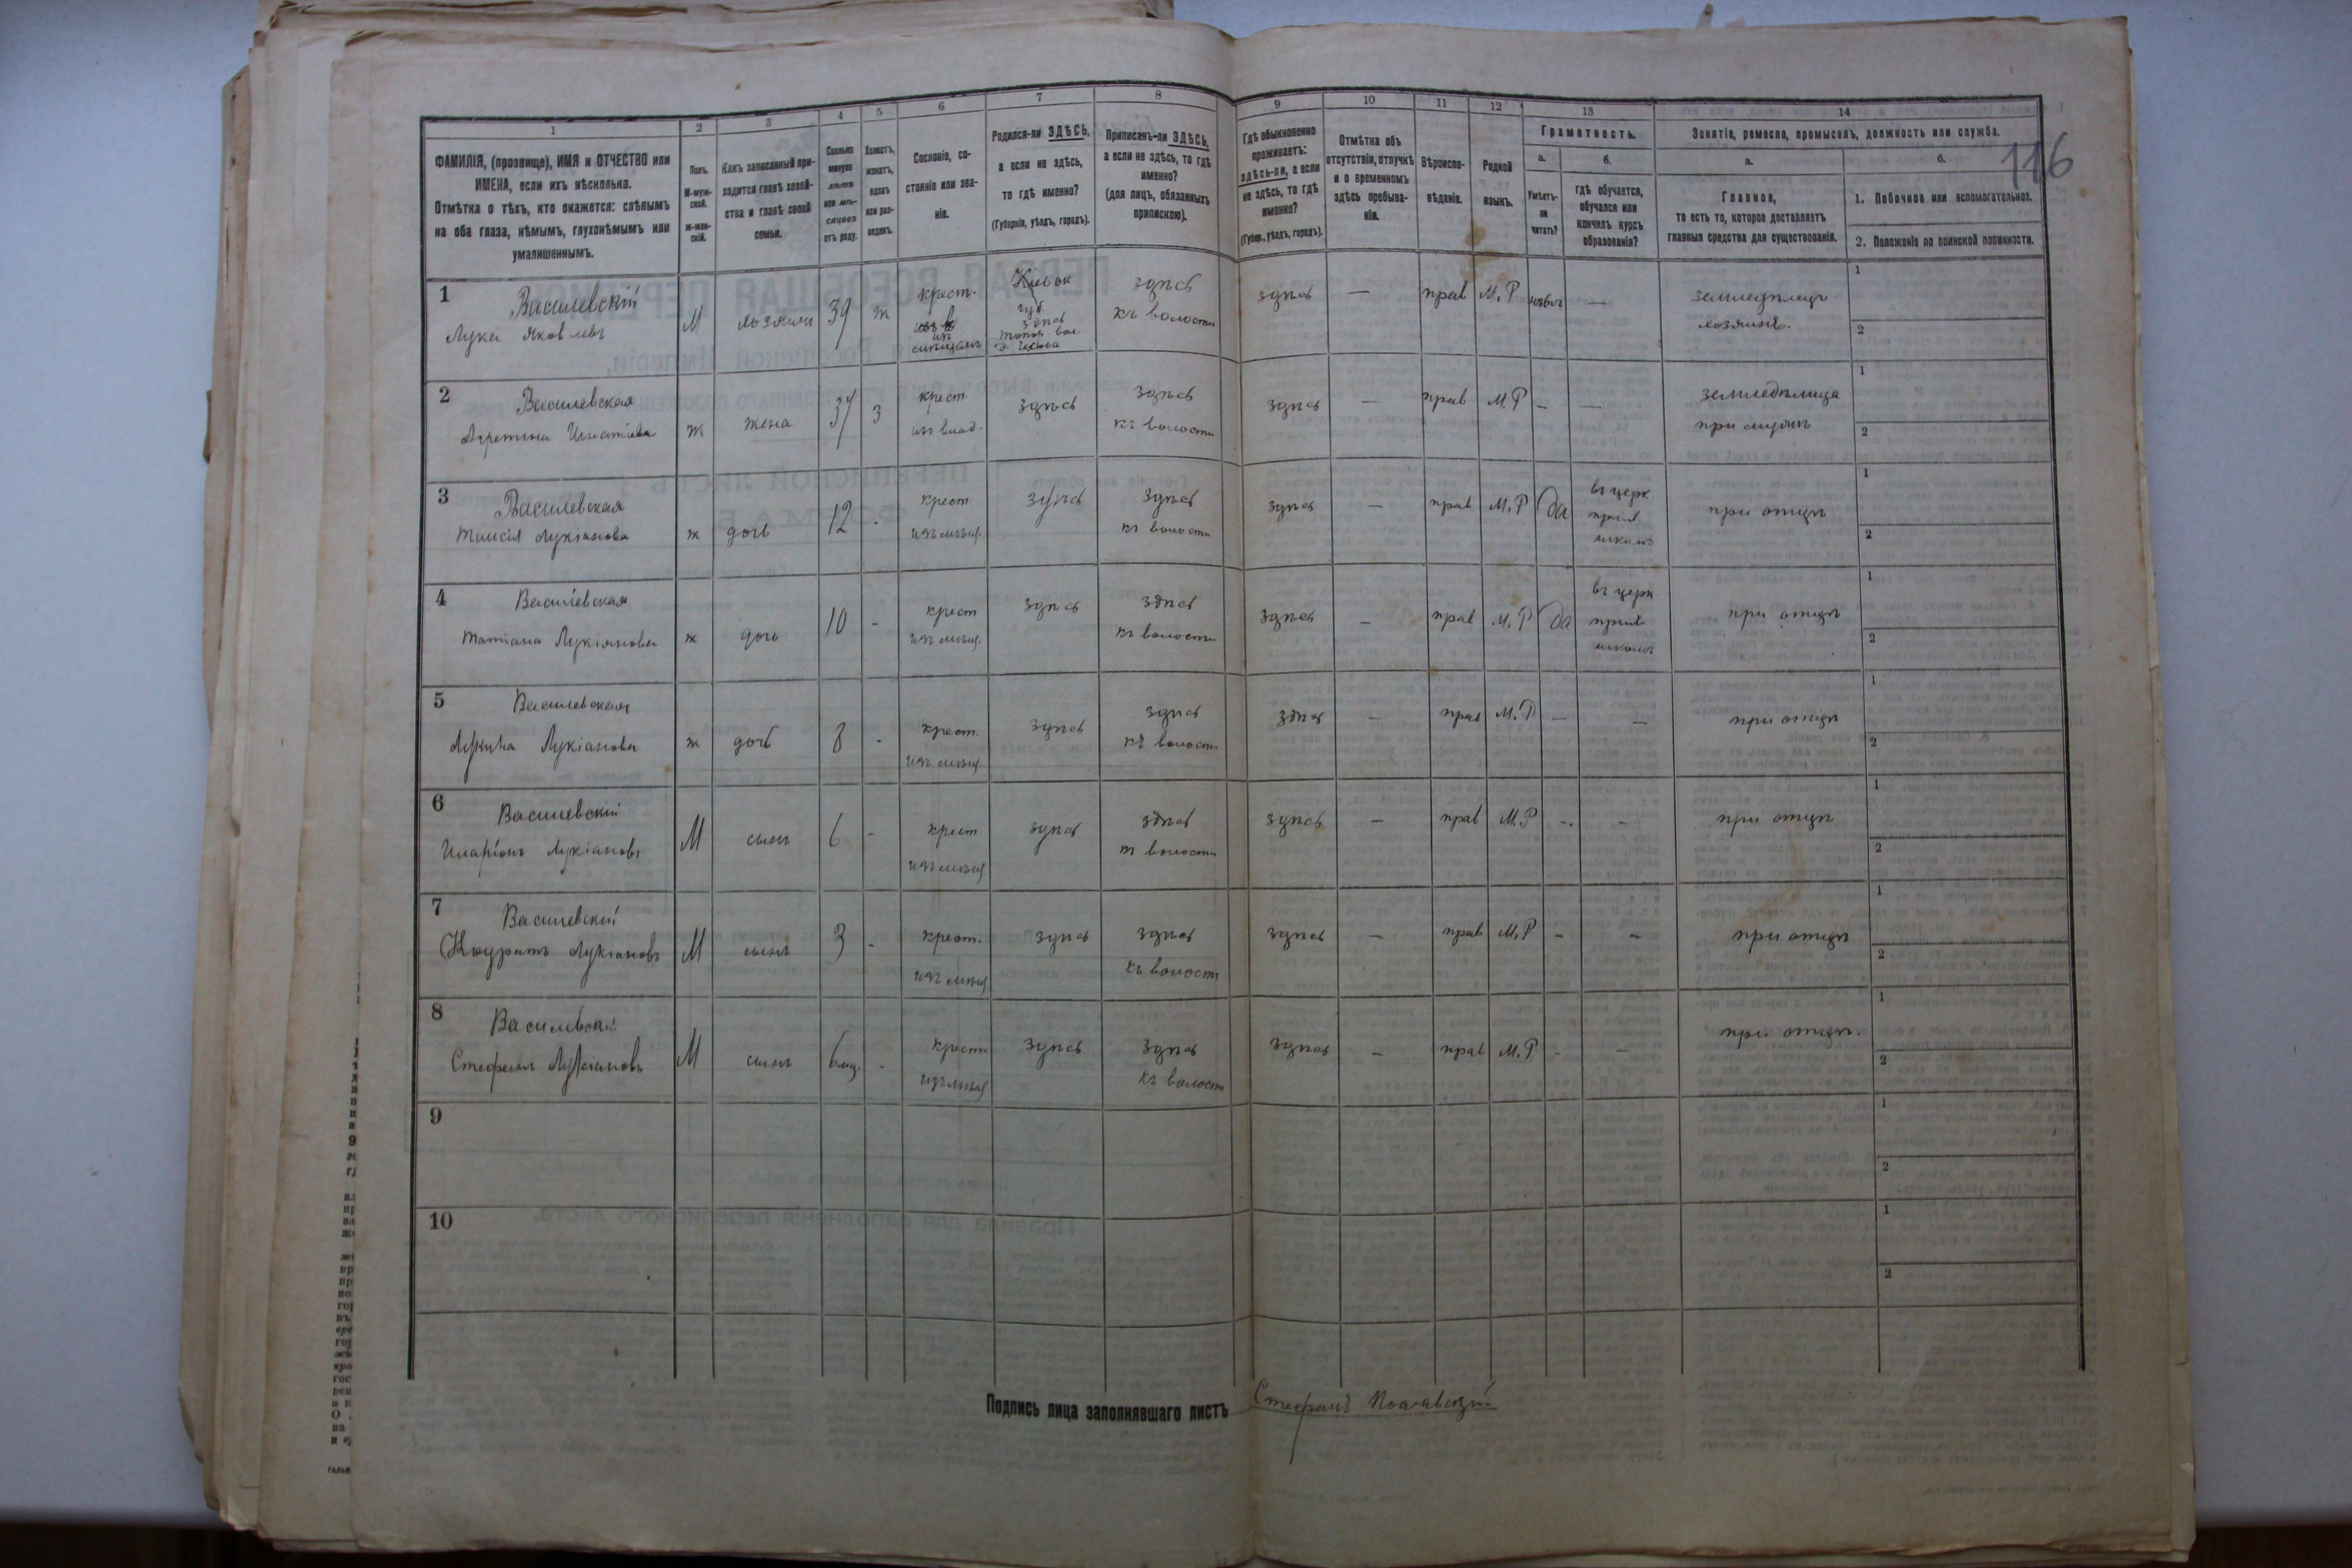 116
1 2 3 4 5 6 7 8 9 10 11 12 13 14
ФАМИЛІЯ, (прозвище), ИМЯ и ОТЧЕСТВО или
ИМЕНА, если ихъ нѣсколько.
Отмѣтка о тѣхъ, кто окажется: слѣпымъ
на оба глаза, нѣмымъ, глухонѣмымъ или
умалишеннымъ.
Полъ.
М-муж-
ской.
Ж-жен-
скій.
Какъ записанный при-
ходится главѣ хозяй-
ства и главѣ своей
семьи.
Сколько
минуло
лѣтъ
или мѣ-
сяцевъ
отъ роду.
Холостъ,
женатъ,
вдовъ
или раз-
веденъ.
Сословіе, со-
стояніе или зва-
ніе.
Родился-ли ЗДѢСЬ,
а если не здѣсь,
то гдѣ именно?
(Губернія, уѣздъ, городъ).
Приписанъ-ли ЗДѢСЬ,
а если не здѣсь, то гдѣ
именно?
(для лицъ, обязанныхъ
припискою).
Гдѣ обыкновенно
проживаетъ:
здѣсь-ли, а если
не здѣсь, то гдѣ
именно?
(Губер., уѣздъ, городъ).
Отмѣтка объ
отсутствіи, отлучкѣ
и о временномъ
здѣсь пребыва-
ніи.
Вѣроиспо-
вѣданіе.
Родной
языкъ.
Грамотность.
а.
Умѣетъ-
ли
читать?
б.
гдѣ обучается,
обучался или
кончилъ курсъ
образованія?
Занятіе, ремесло, промыселъ, должность или служба.
а.
Главное,
то есть то, которое доставляетъ
главныя средства для существованія.
б.
1. Побочное или вспомогательное.
2. Положеніе по воинской повинности.
1 Василевскій
Лука Яковлевъ М хозяинъ 39 ж крест. Кіевск губ. здѣсь къ волости здѣсь — прав М. Р — земледѣлецъ хозяинъ. 1 2
2 Василевская
Игнатіева ж жена 37 з крест. изъ влад. здѣсь здѣсь къ волости здѣсь — прав М. Р — — земледѣлица при мужѣ 1 2
3 Василевская
Таисія Лукіанова ж дочь 12 - крест здѣсь здѣсь къ волости здѣсь — прав М. Р да въ церк прих. школѣ при отцѣ 1 2
4 Василевская
Татіана Лукіянова ж дочь 10 - крест здѣсь здѣсь къ волости здѣсь — прав М. Р да въ церк прих школѣ при отцѣ 1 2
5 Василевская
Лукіанова ж дочь 8 - крест. здѣсь здѣсь къ волости здѣсь — прав М. Р — — при отцѣ 1 2
6 Василевскій
Иларіонъ Лукіановъ М сынъ 6 - крест здѣсь здѣсь къ волости здѣсь — прав М. Р - - при отцѣ 1 2
7 Василевскій
Кодратъ Лукіановъ М сынъ 3 - крест. здѣсь здѣсь къ волости здѣсь — прав М. Р - - при отцѣ 1 2
8 Василевскій
Стефанъ Лукіановъ М сынъ 6 мц. - крест здѣсь здѣсь къ волости здѣсь — прав М. Р - - при отцѣ 1 2
9 1 2
10 1 2
Подпись лица заполнявшаго листъ Стефанъ